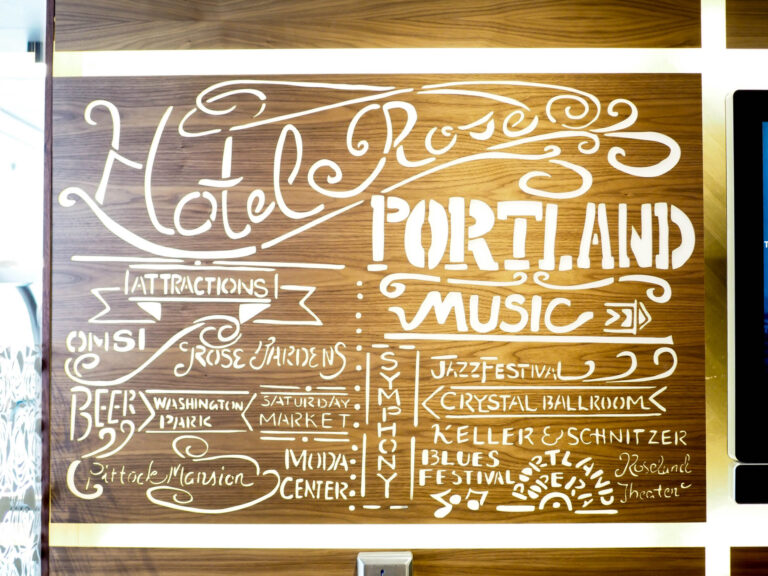 Hotel Rose
PORTLAND
ATTRACTIONS
OMSI
ROSE GARDENS
BEER
WASHINGTON
PARK
SATURDAY
MARKET
Pittock Mansion
MODA
CENTER
MUSIC
SYMPHONY
JAZZ FESTIVAL
CRYSTAL BALLROOM
KELLER & SCHNITZER
BLUES
FESTIVAL
PORTLAND
OPERA
Roseland
Theater